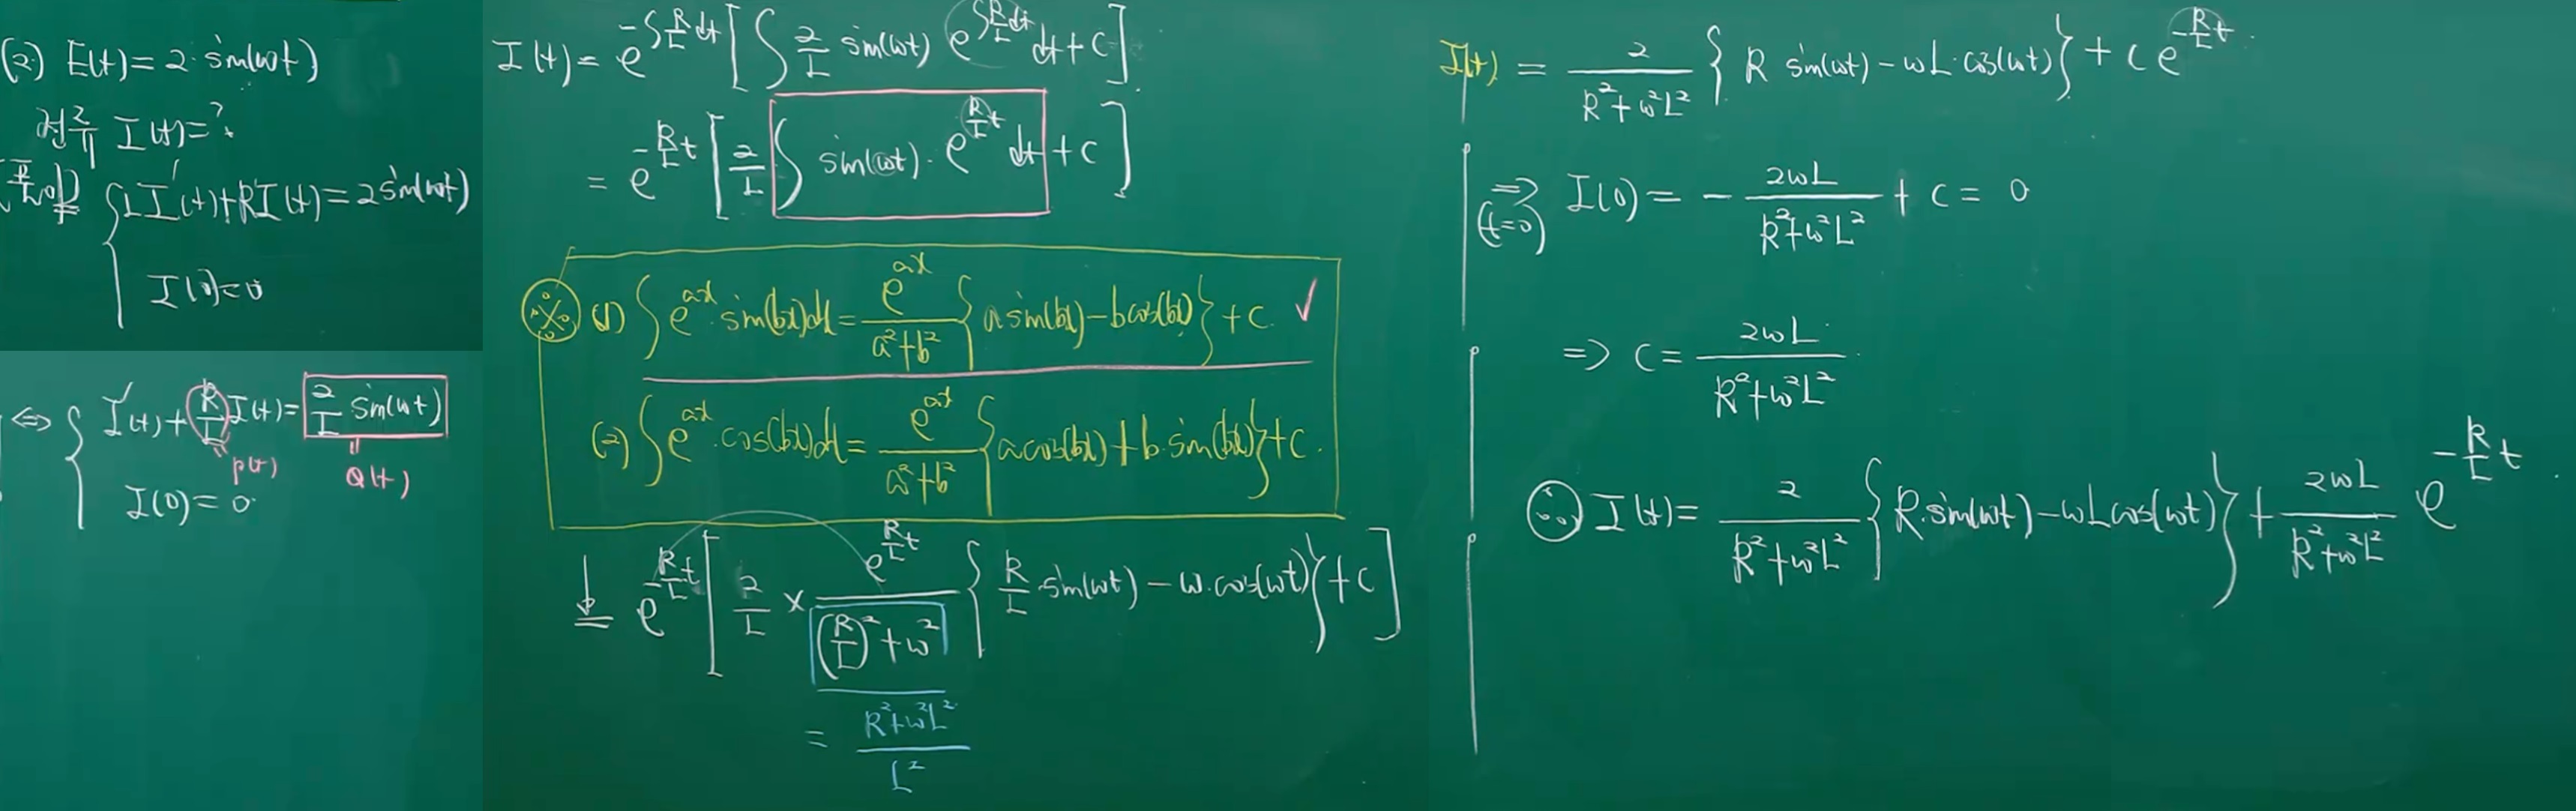 (2) E(t) = 2·sin(ωt)
전류 I(t) = ?
풀이) { L I'(t) + R I(t) = 2 sin(ωt)
I(0) = 0
⇔ { I'(t) + R/L I(t) = 2/L sin(ωt)
p(t) Q(t)
I(0) = 0
I(t) = e^{-∫R/L dt} [ ∫ 2/L sin(ωt) e^{∫R/L dt} dt + c ]
= e^{-R/L t} [ 2/L ∫ sin(ωt)· e^{R/L t} dt + c ]
※ (1) ∫ e^{ax}·sin(bx)dx = e^{ax}/(a²+b²) { a sin(bx) - b cos(bx) } + c. ✓
(2) ∫ e^{ax}·cos(bx)dx = e^{ax}/(a²+b²) { a cos(bx) + b·sin(bx) } + c.
↓ e^{-R/L t} [ 2/L × e^{R/L t}/((R/L)²+ω²) { R/L·sin(ωt) - ω·cos(ωt) } + c ]
= (R²+ω²L²)/L²
I(t) = 2/(R²+ω²L²) { R sin(ωt) - ωL·cos(ωt) } + c e^{-R/L t}.
⇒ (t=0) I(0) = - 2ωL/(R²+ω²L²) + c = 0
⇒ c = 2ωL/(R²+ω²L²)
∴ I(t) = 2/(R²+ω²L²) { R·sin(ωt) - ωL cos(ωt) } + 2ωL/(R²+ω²L²) e^{-R/L t}.